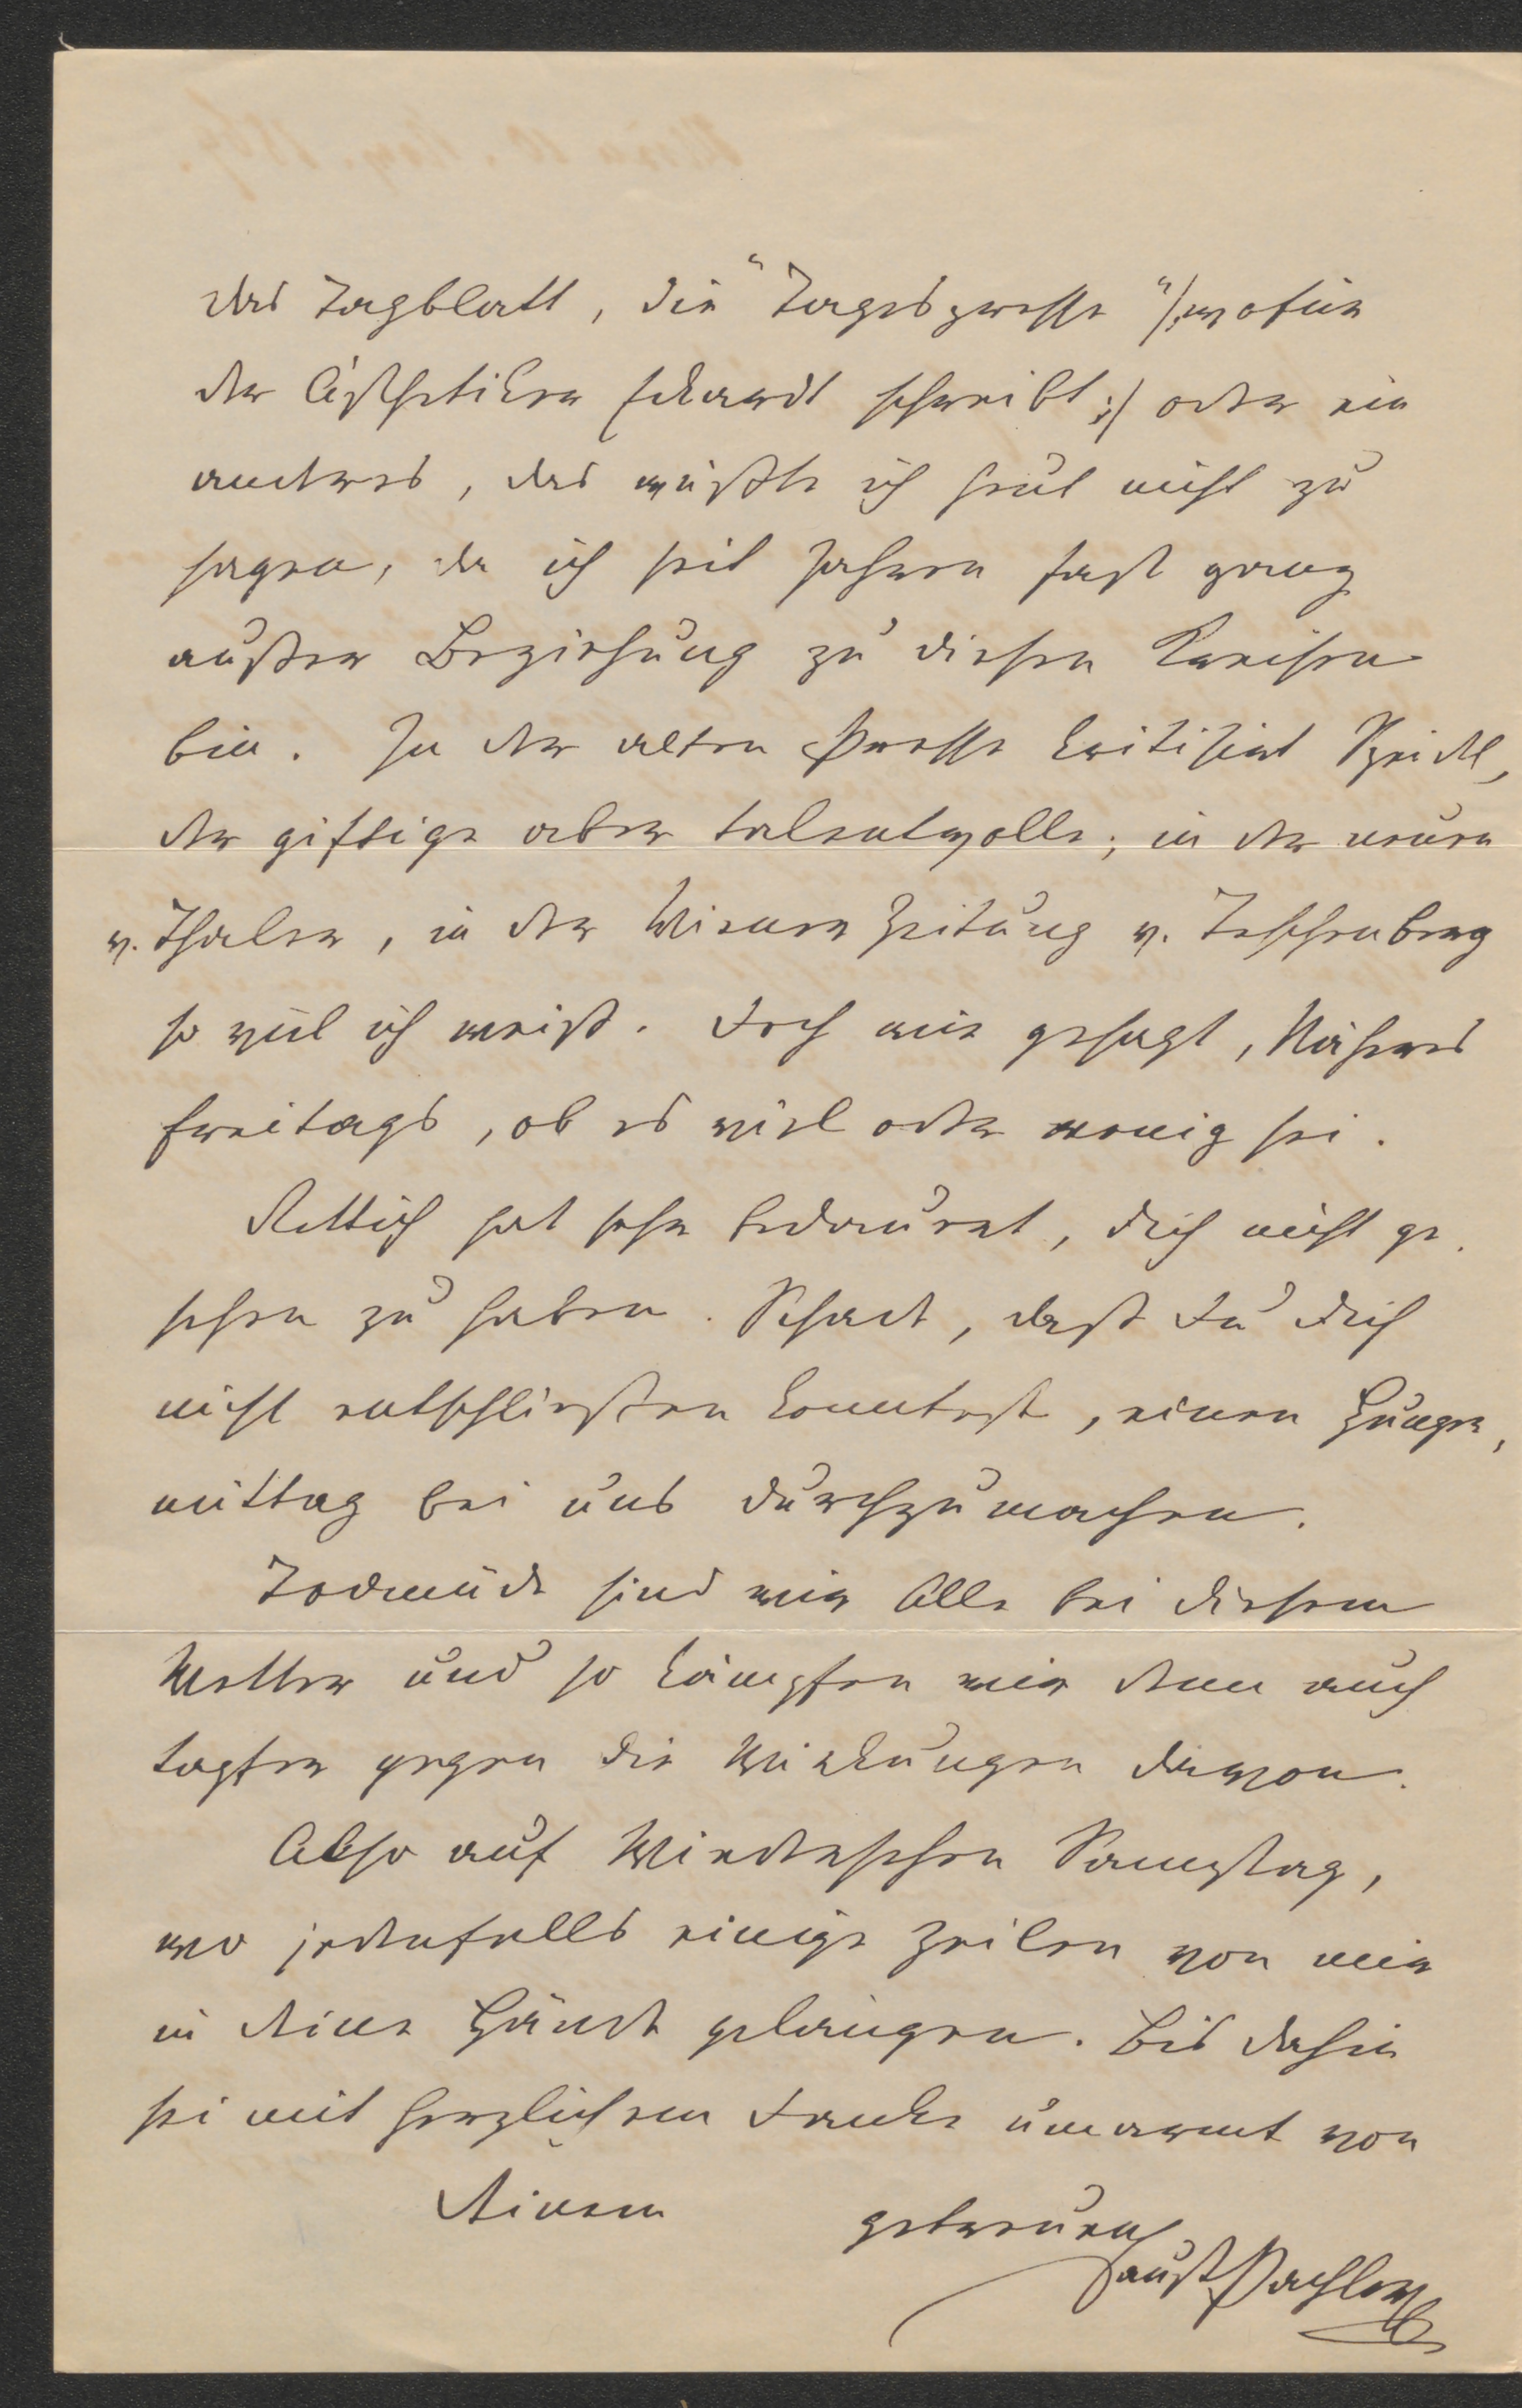 das Tagblatt, die "Tagespresse" /: wofür
der Ästhetiker Eckardt schreibt :/ oder ein
anderes, das wüßte ich heut nicht zu
sagen, da ich seit Jahren fast ganz
außer Beziehung zu diesen Kreisen
bin. In der alten Presse kritisirt Speidl,
der giftige aber talentvolle; in der neuen
v. Thaler, in der Wiener Zeitung v. Teschenberg
so viel ich weiß. Doch wie gesagt, Näheres
Freitags, ob es viel oder wenig sei.
Rettich hat sehr bedauert, dich nicht ge-
sehen zu haben. Schade, daß Du dich
nicht entschließen konntest, einen Hunger-
mittag bei uns durchzumachen.
Todmüde sind wir Alle bei diesem
Wetter und so kämpfen wir denn auch
tapfer gegen die Wirkungen davon.
Also auf Wiedersehen Samstag,
wo jedenfalls einige Zeilen von mir
in deine Hände gelangen. Bis dahin
sei mit herzlichem Danke umarmt von
Deinem getreuen
Faust Pachler